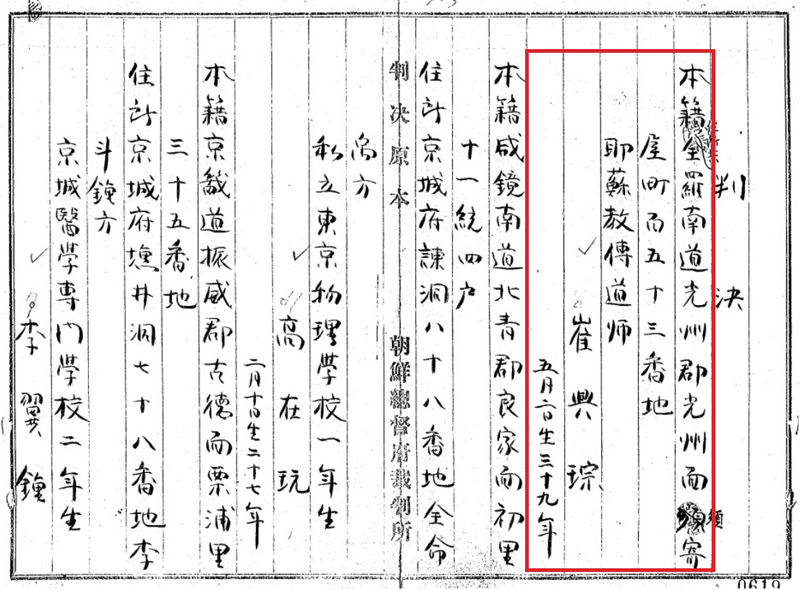 判決
本籍全羅南道光州郡光州面須寄
屋町百五十三番地
耶蘇敎傳道师
崔興琮
五月二日生三十九年
本籍咸鏡南道北青郡良家面初里
十一統四户
住所京城府諫洞八十八番地全命
禹方
私立東京物理學校一年生
高在玩
二月十日生二十七年
判決原本
朝鮮總督府裁判所
本籍京畿道振威郡古德面栗浦里
三十五番地
住所京城府塘井洞七十八番地李
斗鍾方
京城醫學専门學校二年生
李翼鍾
0619